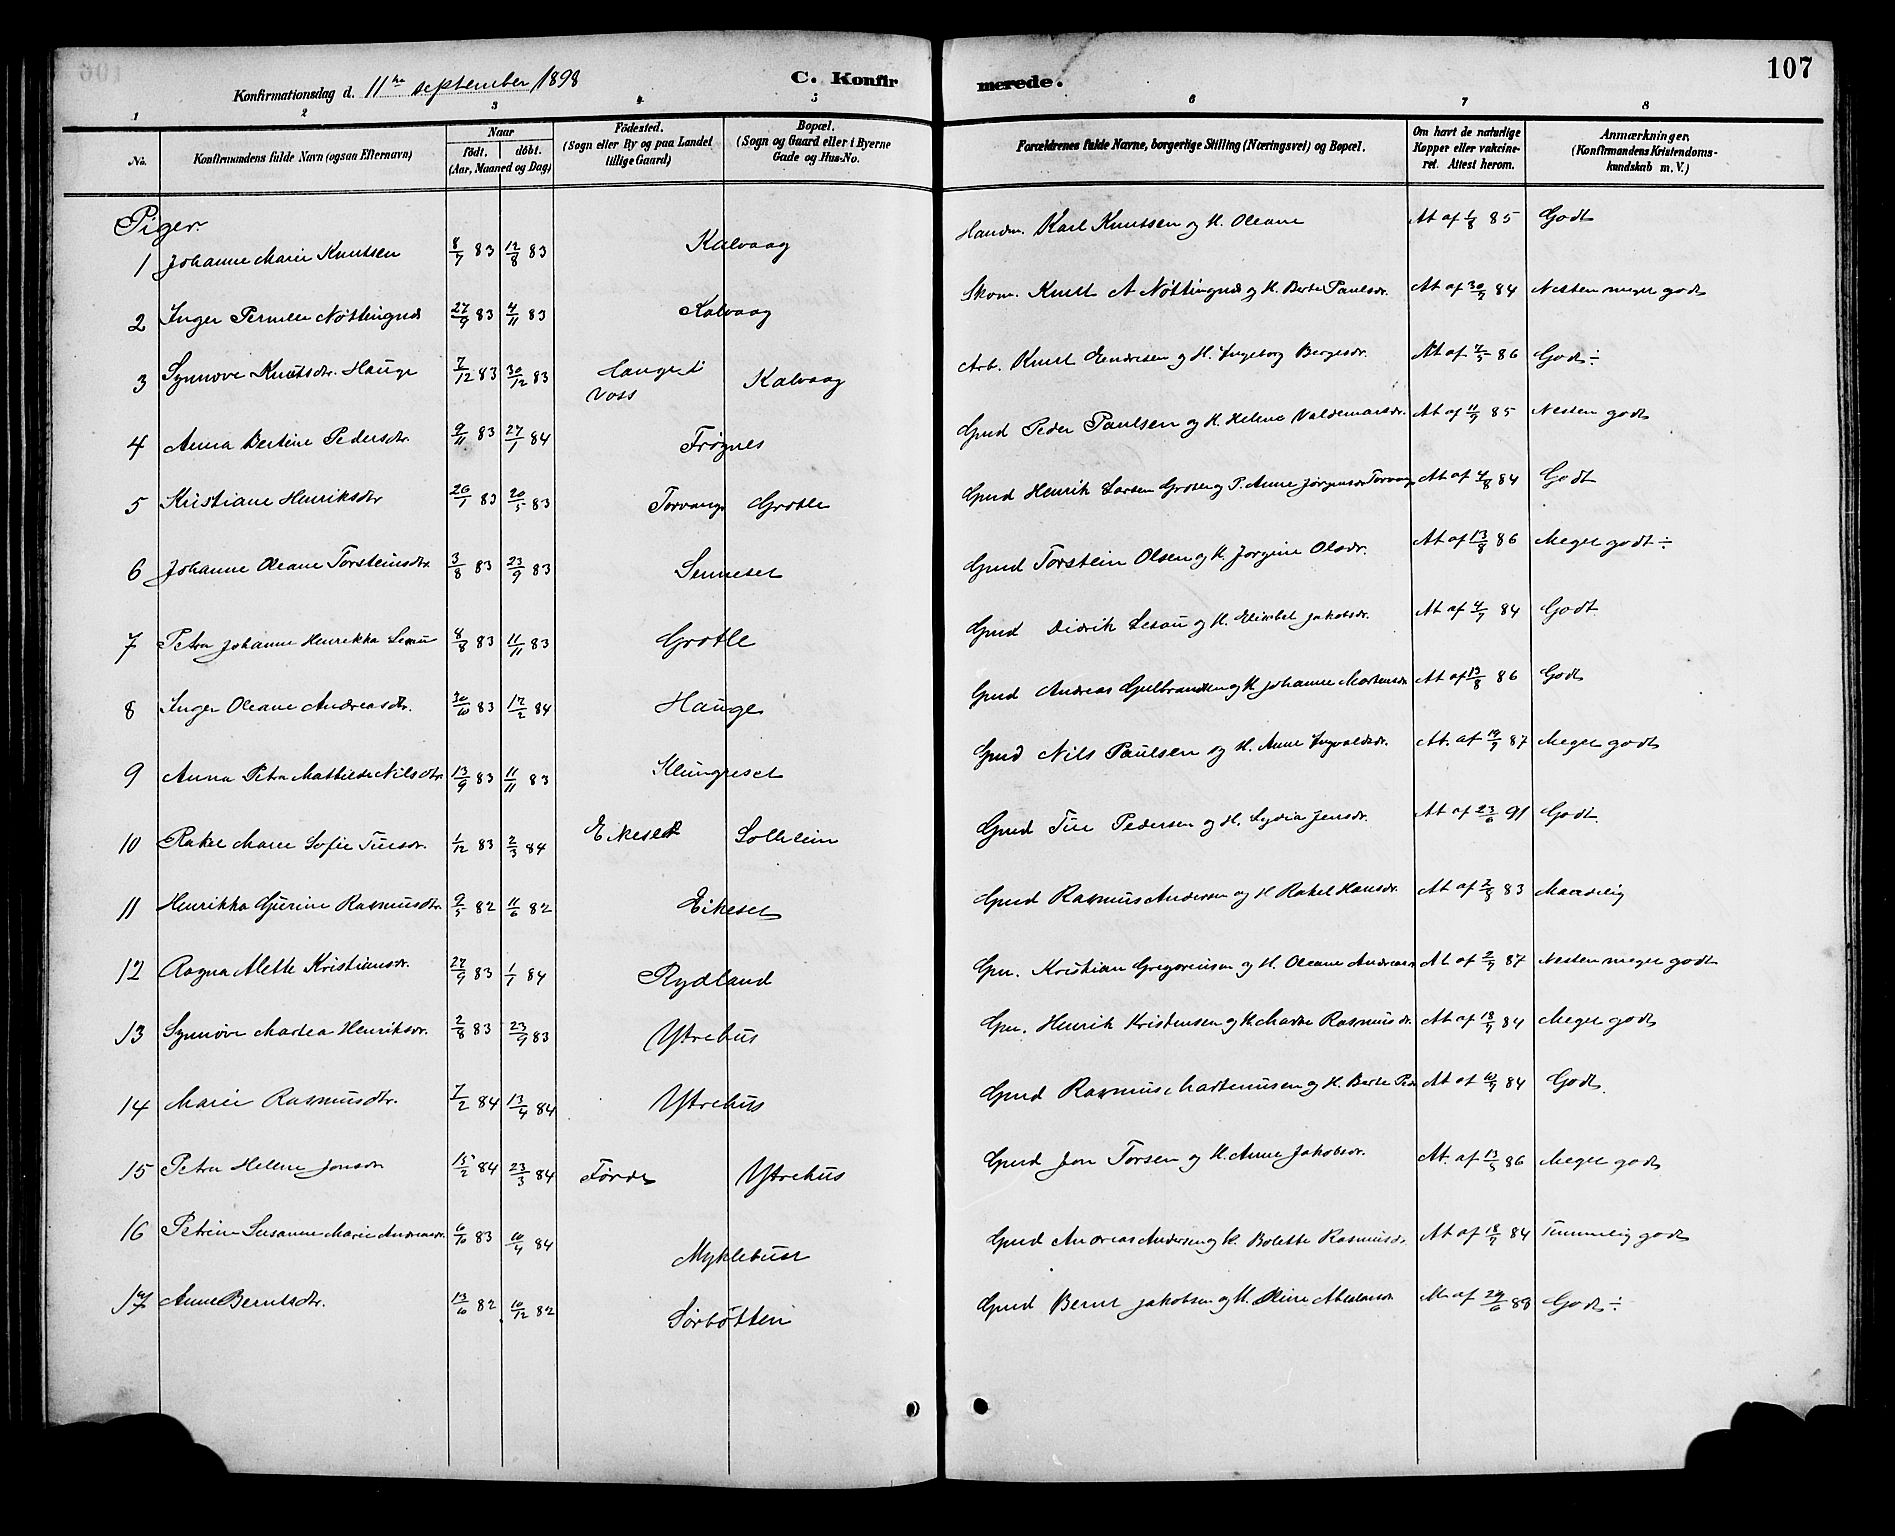 107
Konfirmationsdag d. 11te september 1898 C. Konfirmerede.
1 2 3 4 5 6 7 8
No.
Konfirmandens fulde Navn (ogsaa Efternavn)
Naar
födt. döbt.
(Aar, Maaned og Dag)
Födested.
(Sogn eller By og paa Landet
tillige Gaard)
Bopæl.
(Sogn og Gaard eller i Byerne
Gade og Hus-No.
Forældrenes fulde Navne, borgerlige Stilling (Næringsvei) og Bopæl.
Om havt de naturlige
Kopper eller vakcine-
ret. Attest herom.
Anmærkninger.
(Konfirmandens Kristendoms-
kundskab m. V.)
Piger.
1 Johanne Marie Knutsen 8/7 83 12/8 83 Kalvaag Karl Knutsen og H. Oleane At af 1/8 85 Godt
2 Inger Pernille Nøttingnes 27/9 83 4/11 83 Kalvaag Skom. Knut A Nøttingnes og H. Berte Paulsdr. At af 30/9 84 Nesten meget godt
3 Synnøve Knutsdtr. Hauge 7/12 83 30/12 83 Hauge i Voss Kalvaag Arb. Knut Endresen og H. Ingeborg Bergesdr. At af 7/5 86 Godt ÷
4 Anna Bertine Pedersdtr. 9/11 83 27/1 84 Frøynes Gmd Peder Paulsen og H. Helene Valdemarsdr. At af 11/9 85 Nesten godt
5 Kristiane Henriksdtr 26/1 83 20/5 83 Torvang Grotle Gmd Henrik Larsen Grotle og P. Anne Jørgensdr Torvang At af 4/8 84 Godt
6 Johanne Oleane Torsteinsdtr 3/8 83 23/9 83 Senneset Gmd Torstein Olsen og H. Jørgine Olsdr. At af 13/8 86 Meget godt ÷
7 Petra Johanne Henrikka 8/8 83 11/11 83 Grotle Gmd Didrik og H. Elisabet Jakobsdr. At af 4/7 84 Godt
8 Inger Oleane Andreasdtr. 30/10 83 17/2 84 Hauge Gmd Andreas Gulbrandsen og H. Johanne Martensdr At af 13/8 86 Godt
9 Anna Petra Mathilde Nilsdtr. 13/9 83 11/11 83 Klungreset Gmd Nils Paulsen og H. Anne Ingvaldsdr. At. af 19/9 87 Meget godt
10 Rakel Marie Sofie Tiisdr. 1/12 83 2/3 84 Eikeset Solheim Gmd Tiu Pedersen og H. Lydia Jensdr. At af 23/6 91 Godt.
11 Henrikka Gurine Rasmusdtr. 9/5 82 11/6 82 Eikeset Gmd Rasmus Andersen og H Rakel Hansdr. At af 2/8 83 Maadelig
12 Ragna Alette Kristiansdr. 27/9 83 1/1 84 Rydland Gm. Kristian Gregoriusen og H. Oleane Andreasdr At af 2/9 87 Nesten meget godt
13 Synnøve Martea Henriksdr. 2/8 83 23/9 83 Ytrehus Gm. Henrik Kristensen og H. Marte Rasmusdr. At af 18/9 84 Meget godt
14 Marie Rasmusdtr. 7/2 84 13/4 84 Ytrehus Gmd Rasmus Martinusen og H. Berte Peds At af 10/9 84 Godt.
15 Petra Helene Jonsdr 15/2 84 23/3 84 Førde Ytrehus Gmd Jon Torsen og H. Anne Jakobsdr. At. af 13/5 86 Meget godt
16 Petrine Susanne Marie Andreasdr. 6/10 83 10/4 84 Myklebust Gmd Andreas Andersen og H. Bolette Rasmusdr. At af 18/7 84 Temmelig godt
17 Anne Berntsdtr. 13/10 82 10/12 82 Sørbøtten Gmd Bernt Jakobsen og H. At af 24/6 88 Godt ÷